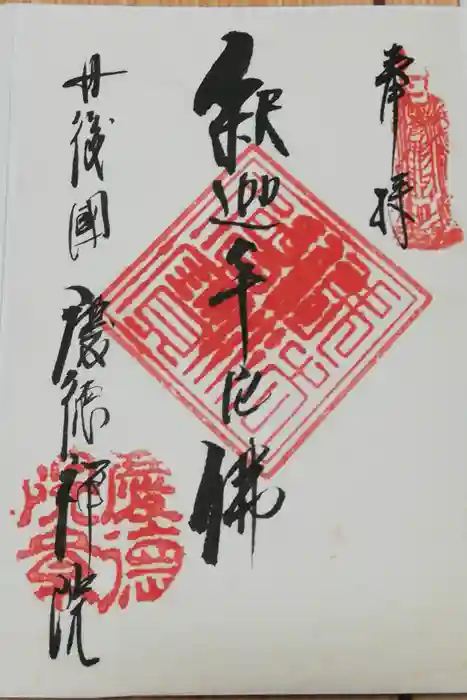 奉拝
釈迦牟尼佛
丹後國 慶徳禅院
慶德院章